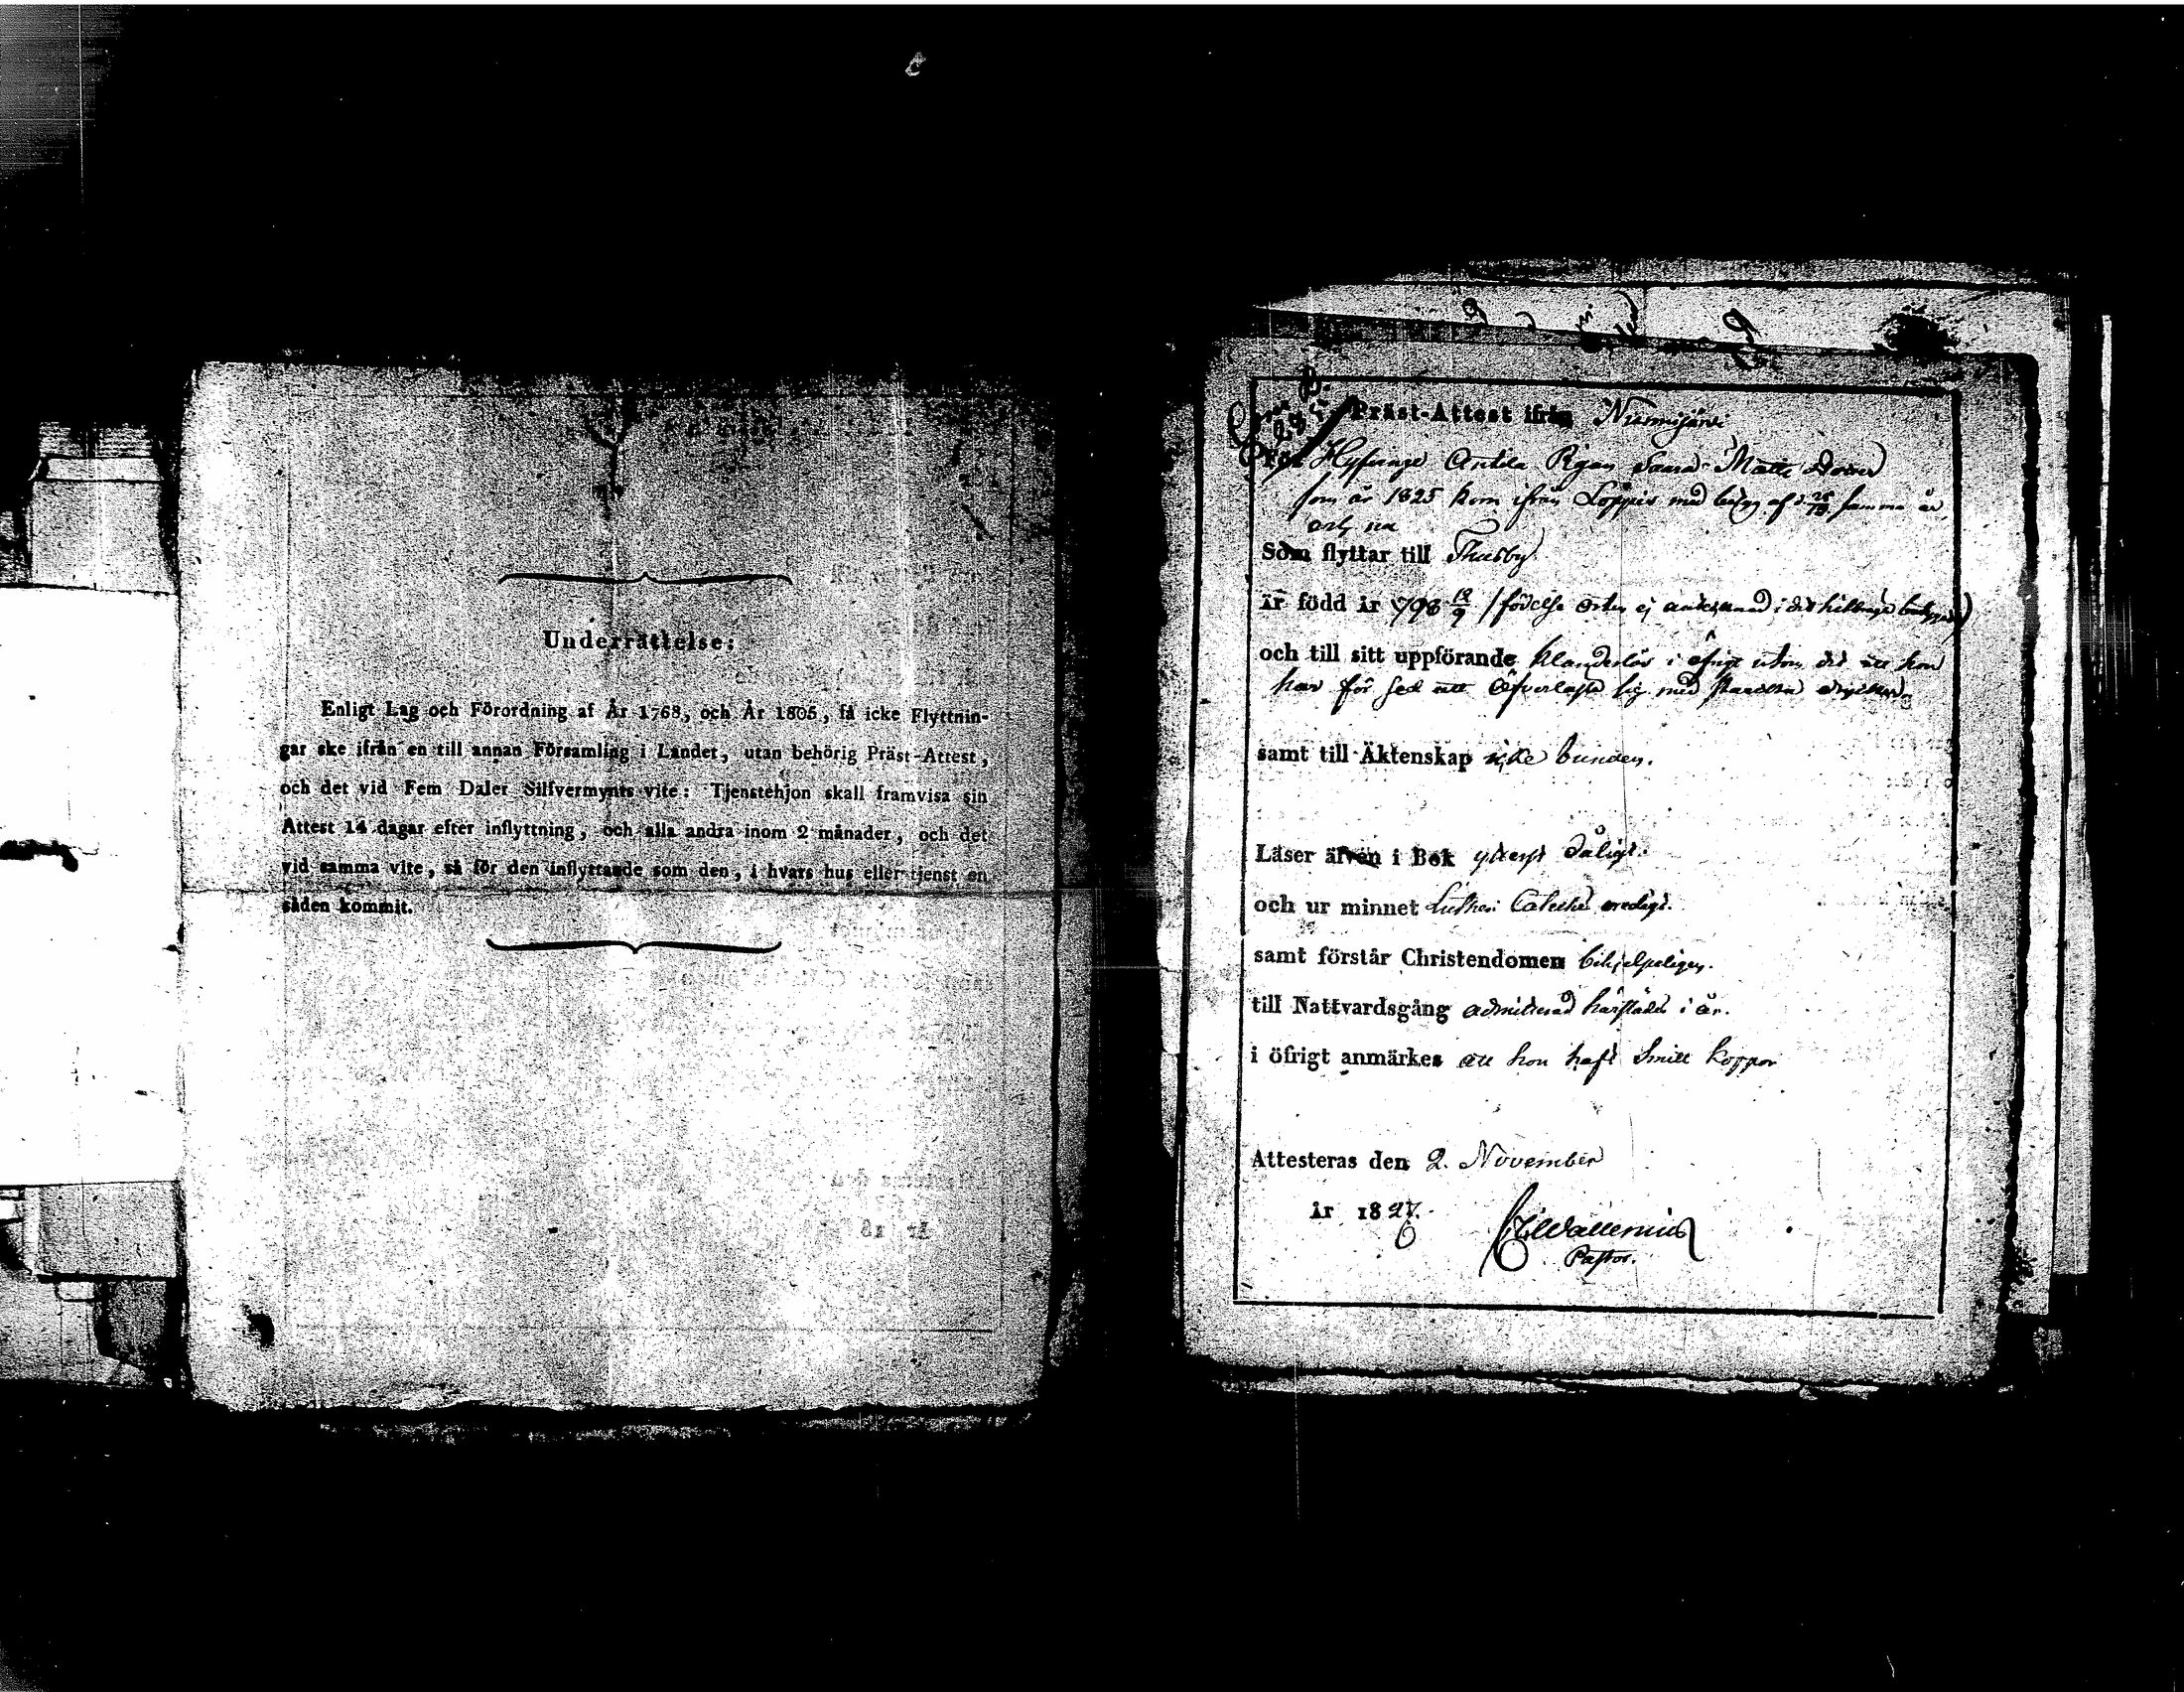 Underrättelse:
Enligt Lag och Förordning af År 1768, och År 1806, få icke Flyttnin-
gar ske ifrån en till annan Församling i Landet, utan behörig Präst-Attest,
och det vid Fem Daler Silfvermynts vite: Tjenstehjon skall framvisa sin
Attest 14 dagar efter inflyttning, och alla andra inom 2 månader, och det
vid samma vite, så för den inflyttande som den, i hvars hus eller tjenst en
såden kommit.
Präst-Attest ifrån Nurmijärvi
För Hyfvinge Anttila Pigan Saara Matts Dotter
som år 1825 kom ifrån Loppis med betyg af d 28/10 samma år
och nu
Som flyttar till Thusby.
är född år 798 12/9 /födelse orten ej antecknad i det hitbragte betyget)
och till sitt uppförande klanderlös i öfrigt utom det att hon
har för sed att öfverlasta sig med starcka drycker.
samt till Äktenskap icke bunden.
Läser äfven i Bok ytterst dåligt.
och ur minnet Lutheri Cateches oredigt.
samt förstår Christendomen behjelpeligen.
till Nattvardsgång admitterad härstädes i år.
i öfrigt anmärkes att hon haft Smitt koppor
Attesteras den 2. November
år 1827.
Wallenius
Pastor.